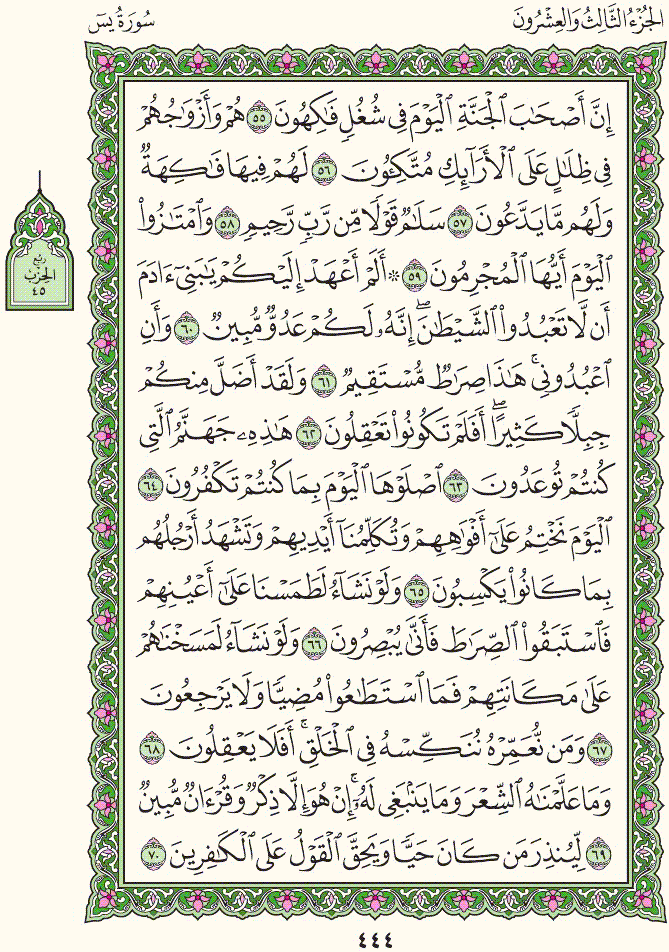 الجُزْءُ الثَّالِثُ وَالعِشْرُونَ
سُورَةُ يسٓ
إِنَّ أَصْحَٰبَ ٱلْجَنَّةِ ٱلْيَوْمَ فِى شُغُلٍ فَٰكِهُونَ ٥٥ هُمْ وَأَزْوَٰجُهُمْ
فِى ظِلَٰلٍ عَلَى ٱلْأَرَآئِكِ مُتَّكِـُٔونَ ٥٦ لَهُمْ فِيهَا فَٰكِهَةٌ
وَلَهُم مَّا يَدَّعُونَ ٥٧ سَلَٰمٌ قَوْلًا مِّن رَّبٍّ رَّحِيمٍ ٥٨ وَٱمْتَٰزُوا۟
ٱلْيَوْمَ أَيُّهَا ٱلْمُجْرِمُونَ ٥٩ ۞ أَلَمْ أَعْهَدْ إِلَيْكُمْ يَٰبَنِىٓ ءَادَمَ
أَن لَّا تَعْبُدُوا۟ ٱلشَّيْطَٰنَ ۖ إِنَّهُۥ لَكُمْ عَدُوٌّ مُّبِينٌ ٦٠ وَأَنِ
ٱعْبُدُونِى ۚ هَٰذَا صِرَٰطٌ مُّسْتَقِيمٌ ٦١ وَلَقَدْ أَضَلَّ مِنكُمْ
جِبِلًّا كَثِيرًا ۖ أَفَلَمْ تَكُونُوا۟ تَعْقِلُونَ ٦٢ هَٰذِهِۦ جَهَنَّمُ ٱلَّتِى
كُنتُمْ تُوعَدُونَ ٦٣ ٱصْلَوْهَا ٱلْيَوْمَ بِمَا كُنتُمْ تَكْفُرُونَ ٦٤
ٱلْيَوْمَ نَخْتِمُ عَلَىٰٓ أَفْوَٰهِهِمْ وَتُكَلِّمُنَآ أَيْدِيهِمْ وَتَشْهَدُ أَرْجُلُهُم
بِمَا كَانُوا۟ يَكْسِبُونَ ٦٥ وَلَوْ نَشَآءُ لَطَمَسْنَا عَلَىٰٓ أَعْيُنِهِمْ
فَٱسْتَبَقُوا۟ ٱلصِّرَٰطَ فَأَنَّىٰ يُبْصِرُونَ ٦٦ وَلَوْ نَشَآءُ لَمَسَخْنَٰهُمْ
عَلَىٰ مَكَانَتِهِمْ فَمَا ٱسْتَطَٰعُوا۟ مُضِيًّا وَلَا يَرْجِعُونَ
٦٧ وَمَن نُّعَمِّرْهُ نُنَكِّسْهُ فِى ٱلْخَلْقِ ۖ أَفَلَا يَعْقِلُونَ ٦٨
وَمَا عَلَّمْنَٰهُ ٱلشِّعْرَ وَمَا يَنۢبَغِى لَهُۥٓ ۚ إِنْ هُوَ إِلَّا ذِكْرٌ وَقُرْءَانٌ مُّبِينٌ
٦٩ لِّيُنذِرَ مَن كَانَ حَيًّا وَيَحِقَّ ٱلْقَوْلُ عَلَى ٱلْكَٰفِرِينَ ٧٠
ربع
الحزب
٤٥
٤٤٤